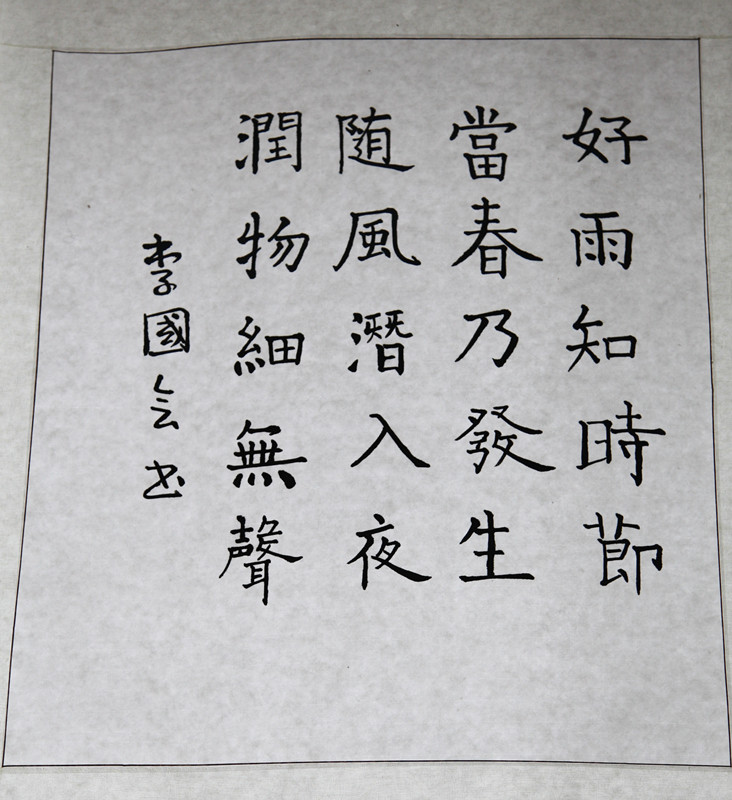 好雨知時節
當春乃發生
随風潛入夜
潤物細無聲
李國会书